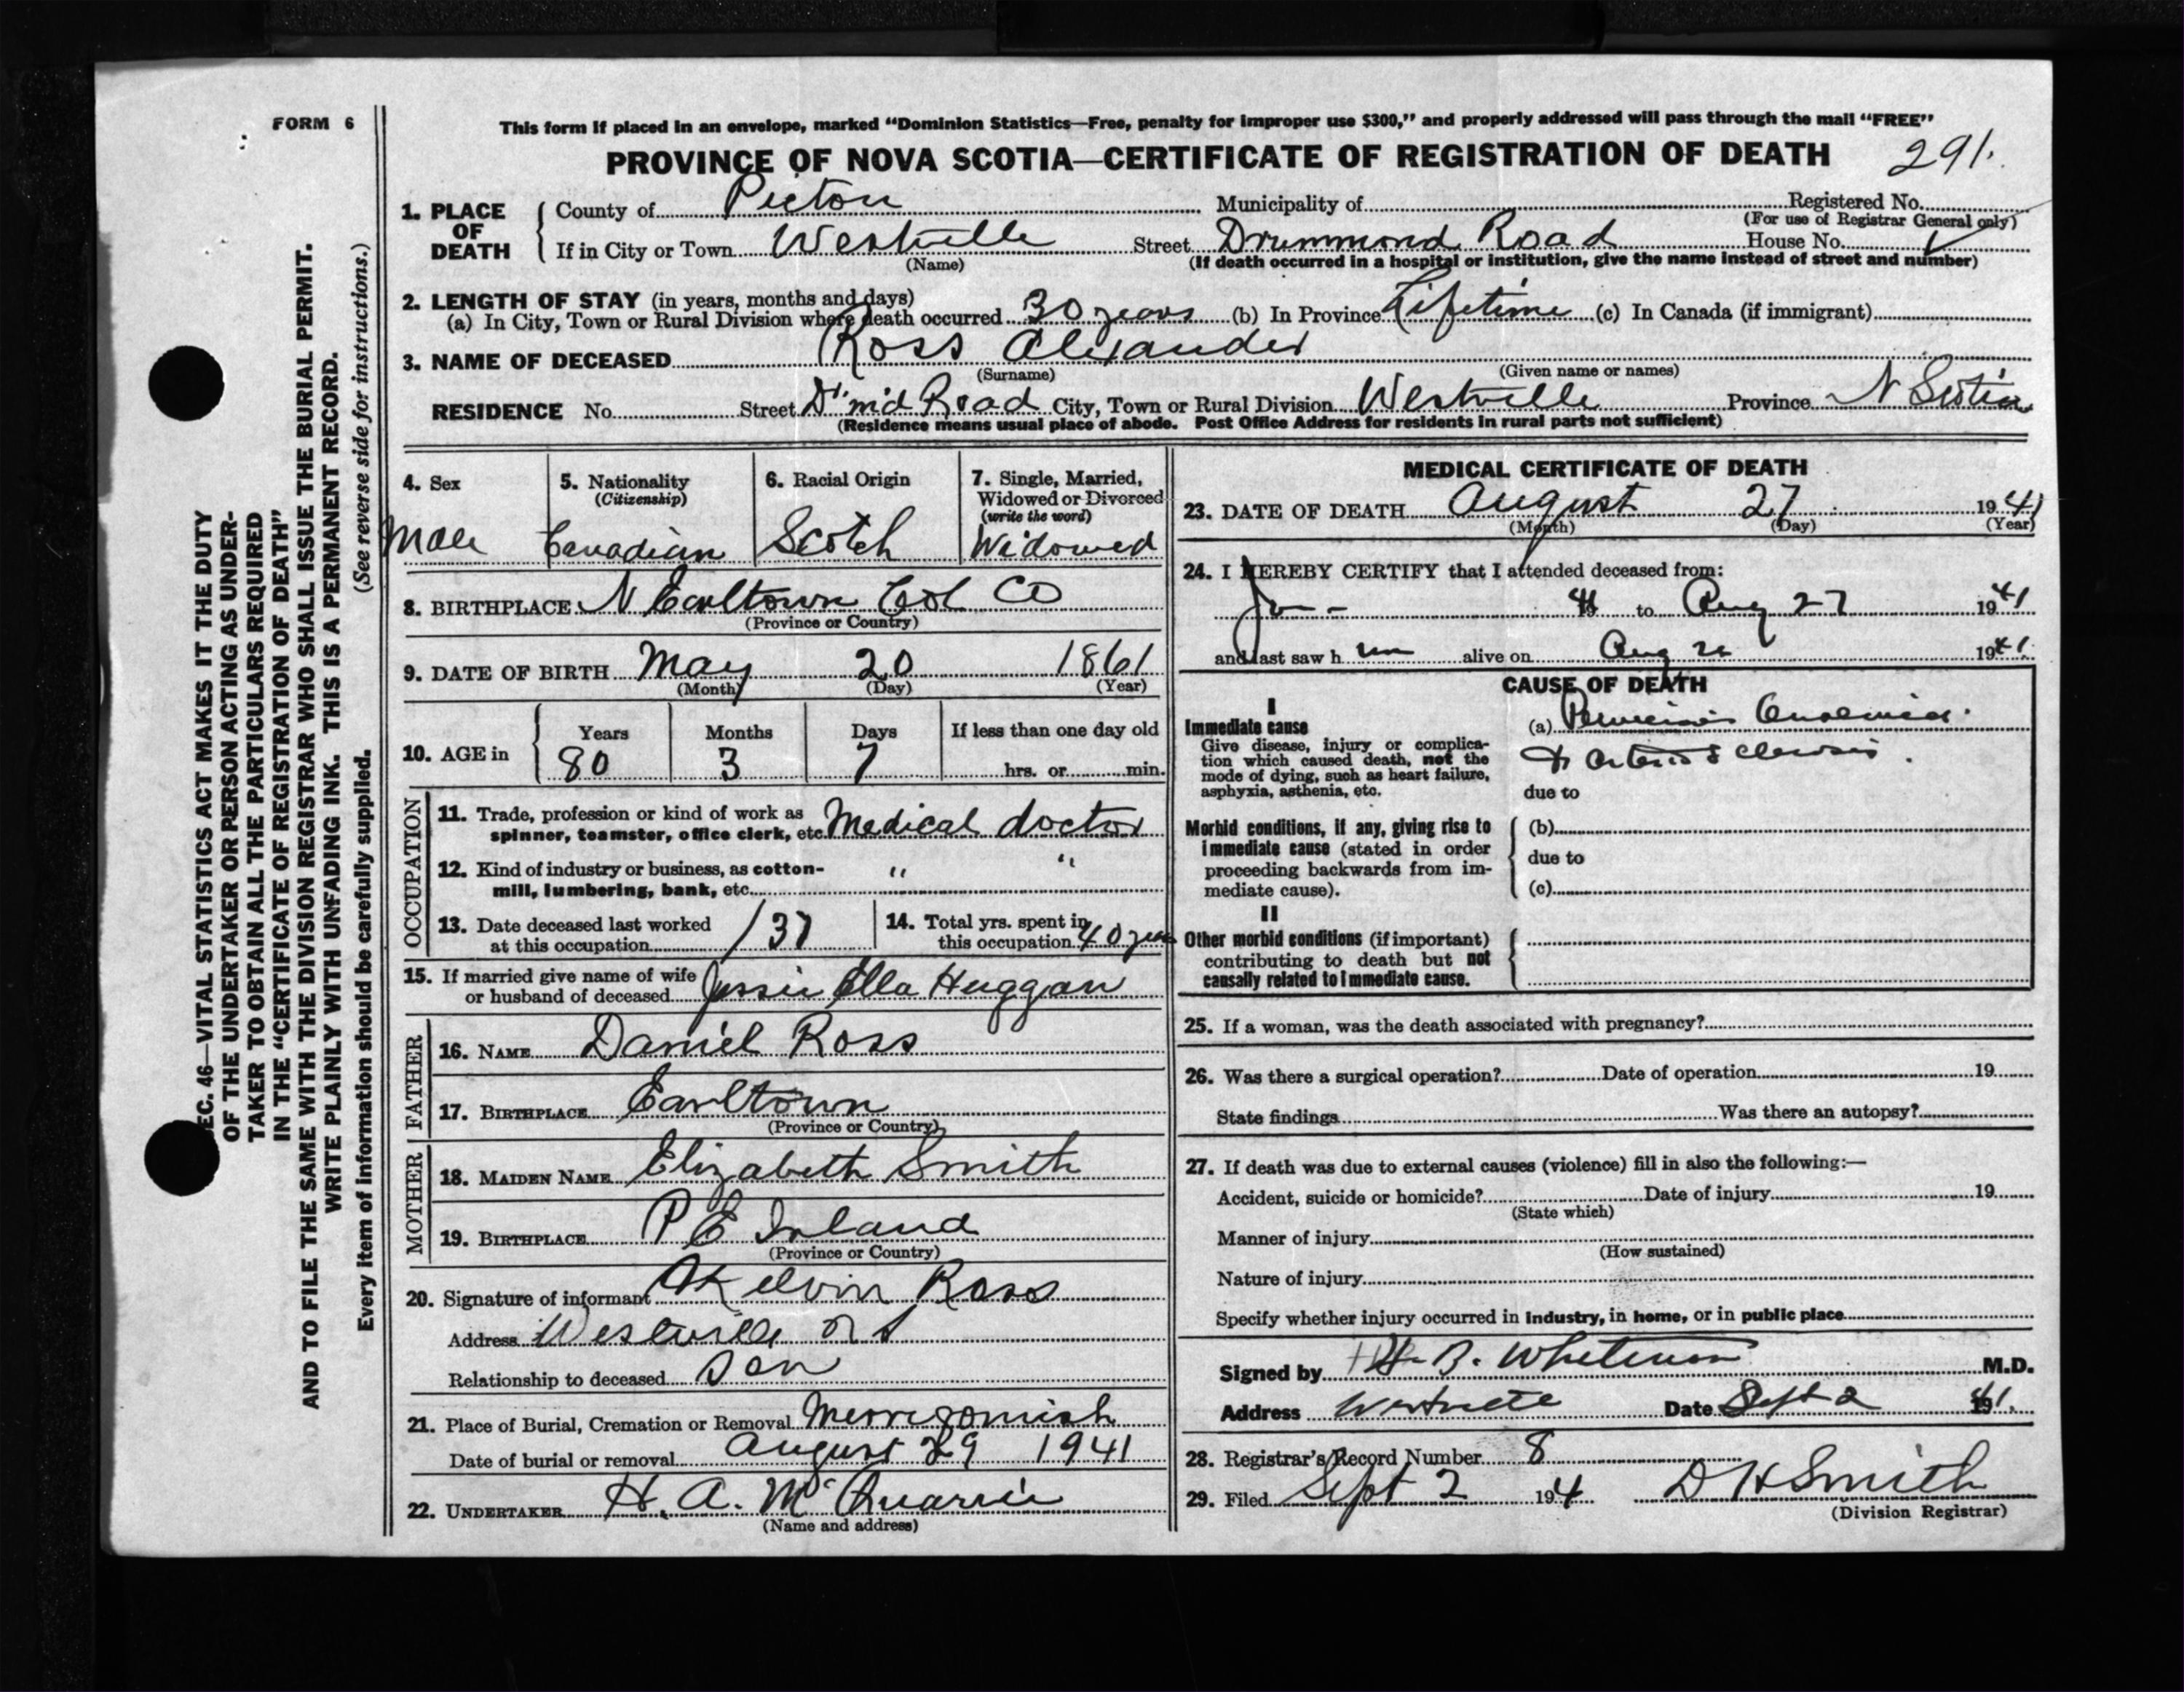 FORM 6
This form if placed in an envelope, marked "Dominion Statistics—Free, penalty for improper use $300," and properly addressed will pass through the mail "FREE"
PROVINCE OF NOVA SCOTIA—CERTIFICATE OF REGISTRATION OF DEATH 291.
1. PLACE OF DEATH
County of Pictou Municipality of Registered No.
(For use of Registrar General only)
If in City or Town Westville Street Drummond Road House No.
(Name) (If death occurred in a hospital or institution, give the name instead of street and number)
2. LENGTH OF STAY (in years, months and days)
(a) In City, Town or Rural Division where death occurred 30 years (b) In Province Lifetime (c) In Canada (if immigrant)
3. NAME OF DECEASED Ross Alexander
(Surname) (Given name or names)
RESIDENCE No. Street D'mid Road City, Town or Rural Division Westville Province N Scotia
(Residence means usual place of abode. Post Office Address for residents in rural parts not sufficient)
4. Sex
Male
5. Nationality
(Citizenship)
Canadian
6. Racial Origin
Scotch
7. Single, Married,
Widowed or Divorced
(write the word)
Widowed
8. BIRTHPLACE N Earltown Col Co
(Province or Country)
9. DATE OF BIRTH May 20 1861
(Month) (Day) (Year)
10. AGE in Years Months Days If less than one day old
80 3 7 hrs. or min.
OCCUPATION
11. Trade, profession or kind of work as
spinner, teamster, office clerk, etc. Medical doctor
12. Kind of industry or business, as cotton-
mill, lumbering, bank, etc. " "
13. Date deceased last worked
at this occupation /37
14. Total yrs. spent in
this occupation 40 years
15. If married give name of wife
or husband of deceased Jessie Ella Huggan
FATHER
16. NAME Daniel Ross
17. BIRTHPLACE Earltown
(Province or Country)
MOTHER
18. MAIDEN NAME Elizabeth Smith
19. BIRTHPLACE P E Island
(Province or Country)
20. Signature of informant Kelvin Ross
Address Westville N S
Relationship to deceased Son
21. Place of Burial, Cremation or Removal Merrigomish
Date of burial or removal August 29 1941
22. UNDERTAKER H. A. McQuarrie
(Name and address)
MEDICAL CERTIFICATE OF DEATH
23. DATE OF DEATH August 27 1941
(Month) (Day) (Year)
24. I HEREBY CERTIFY that I attended deceased from:
Jan - 41 to Aug 27 1941
and last saw h im alive on Aug 1941
CAUSE OF DEATH
I
Immediate cause
Give disease, injury or complica-
tion which caused death, not the
mode of dying, such as heart failure,
asphyxia, asthenia, etc.
(a) Pernicious Anaemia.
& Arteriosclerosis.
due to
Morbid conditions, if any, giving rise to
immediate cause (stated in order
proceeding backwards from im-
mediate cause).
(b)
due to
(c)
II
Other morbid conditions (if important)
contributing to death but not
causally related to immediate cause.
25. If a woman, was the death associated with pregnancy?
26. Was there a surgical operation? Date of operation 19
State findings Was there an autopsy?
27. If death was due to external causes (violence) fill in also the following:—
Accident, suicide or homicide? Date of injury 19
(State which)
Manner of injury
(How sustained)
Nature of injury
Specify whether injury occurred in industry, in home, or in public place
Signed by H. B. Whitman M.D.
Address Westville Date Sept 2 41.
28. Registrar's Record Number 8
29. Filed Sept 2 194 D H Smith
(Division Registrar)
SEC. 46—VITAL STATISTICS ACT MAKES IT THE DUTY
OF THE UNDERTAKER OR PERSON ACTING AS UNDER-
TAKER TO OBTAIN ALL THE PARTICULARS REQUIRED
IN THE "CERTIFICATE OF REGISTRATION OF DEATH"
AND TO FILE THE SAME WITH THE DIVISION REGISTRAR WHO SHALL ISSUE THE BURIAL PERMIT.
WRITE PLAINLY WITH UNFADING INK. THIS IS A PERMANENT RECORD.
Every item of information should be carefully supplied. (See reverse side for instructions.)